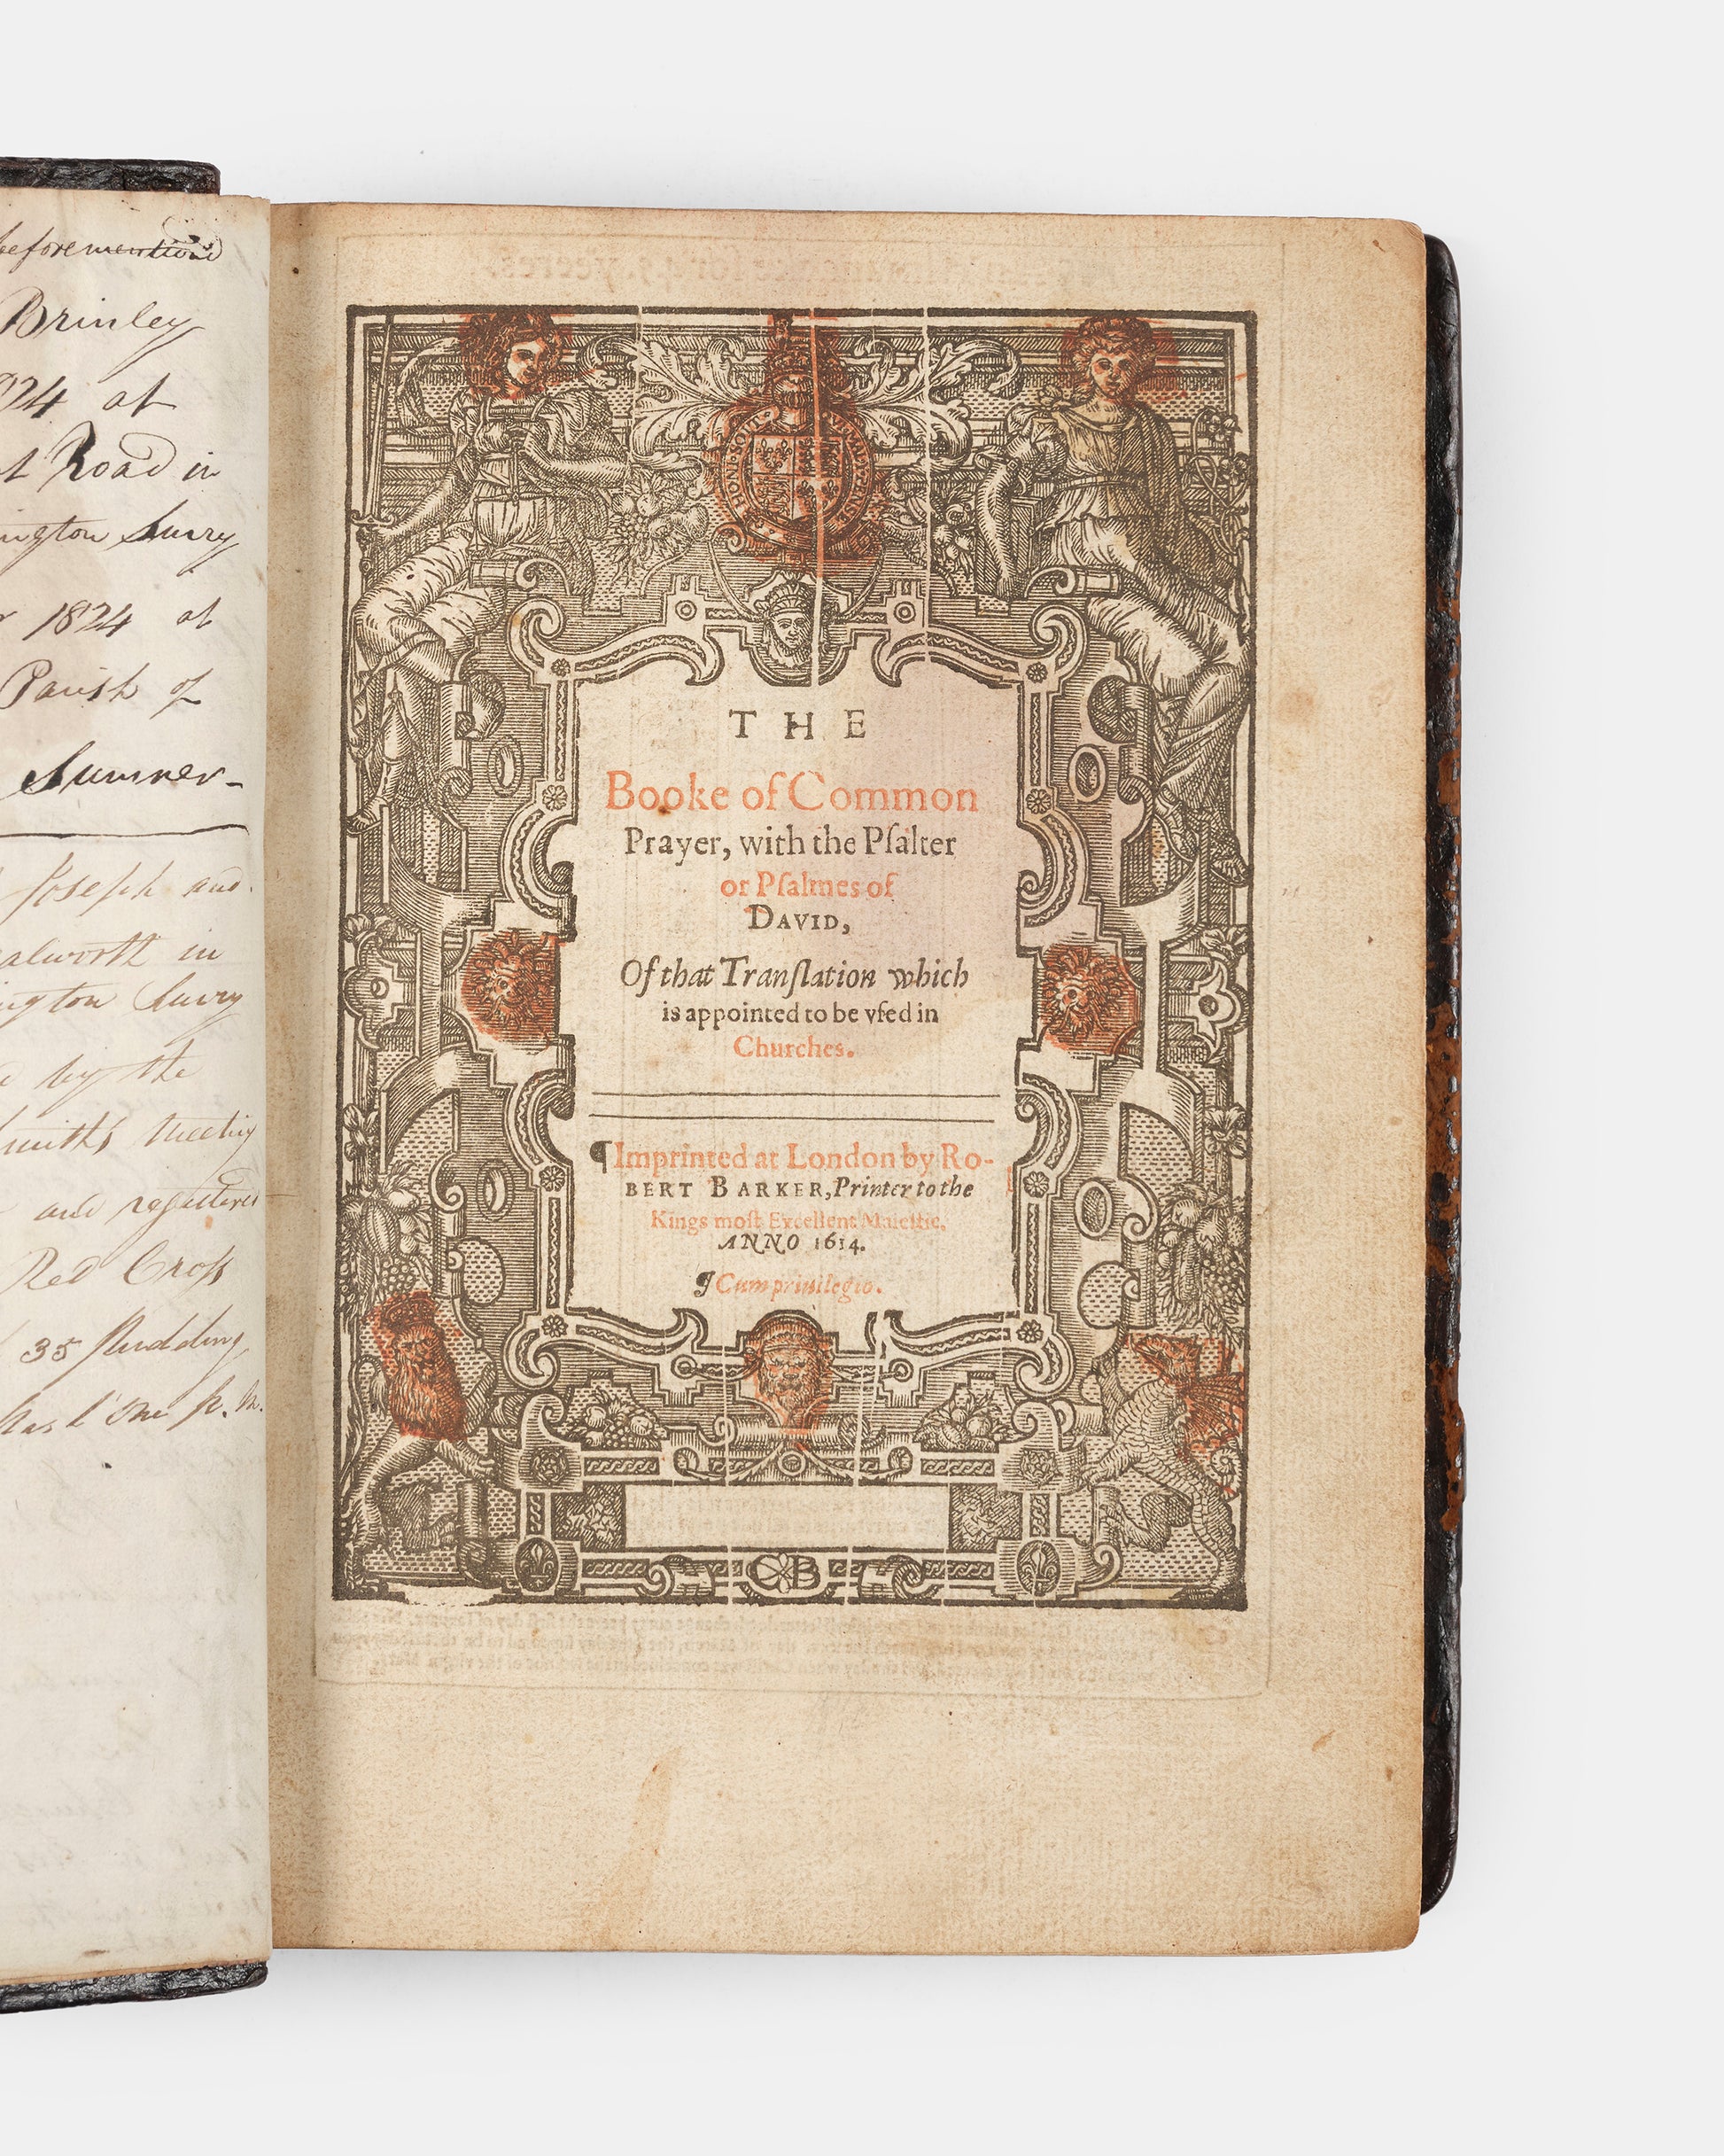 beforementiond
Brinley
1824 at
Road in
ington Surry
1824 at
Parish of
Sumner-
Joseph and
alworth in
ington Surry
by the
smith's Meeting
and registered
Red Cross
35 Pudding
HONI SOIT
MAL Y PENSE
THE
Booke of Common
Prayer, with the Pſalter
or Pſalmes of
DAVID,
Of that Tranſlation which
is appointed to be vſed in
Churches.
¶Imprinted at London by Ro-
BERT BARKER, Printer to the
Kings moſt Excellent Maieſtie.
ANNO 1614.
¶Cum priuilegio.
CB